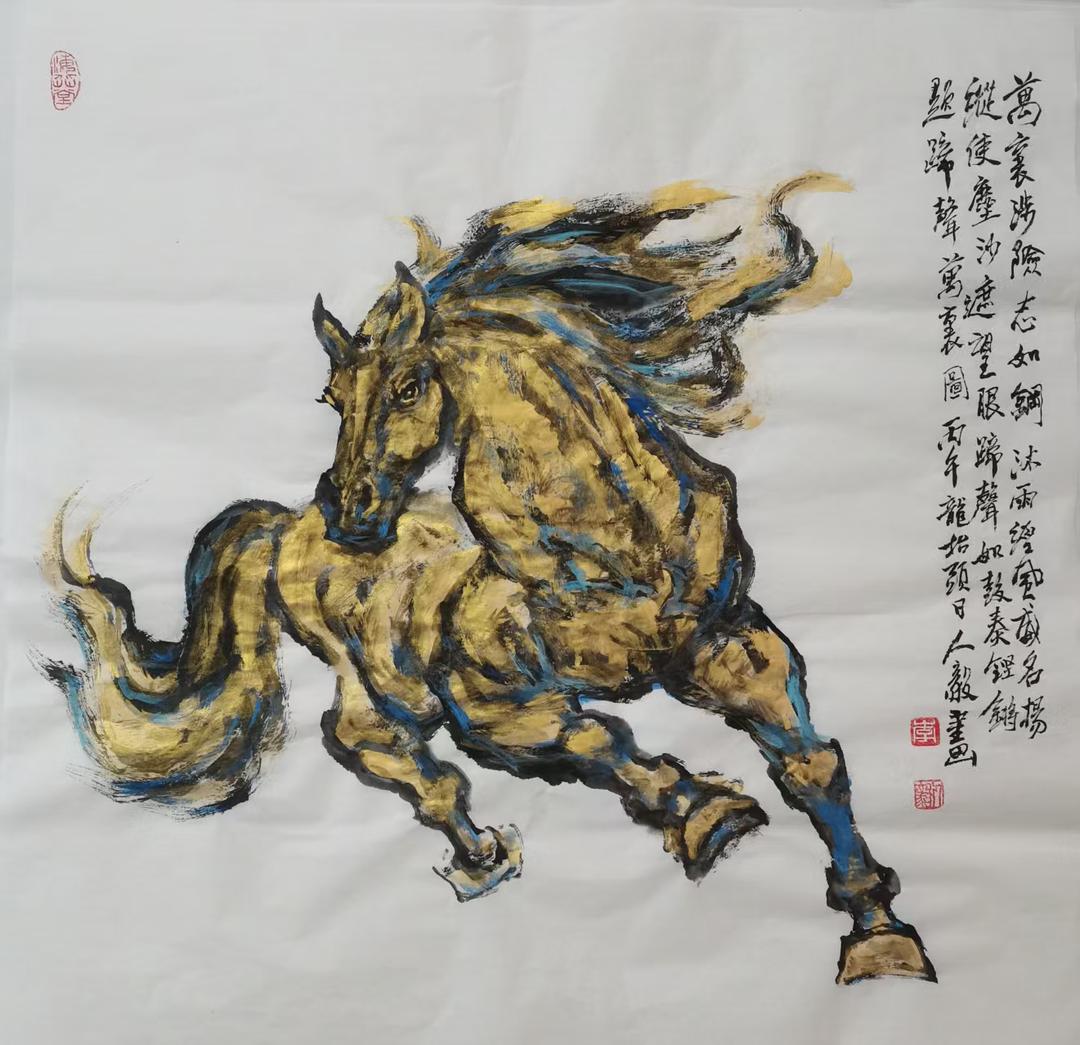 萬裏涉險志如鋼 沐雨經風威名揚
縱使塵沙遮望眼 蹄聲如鼓奏鏗鏘
題蹄聲萬裏圖 丙午龍抬頭日人毅畫
李